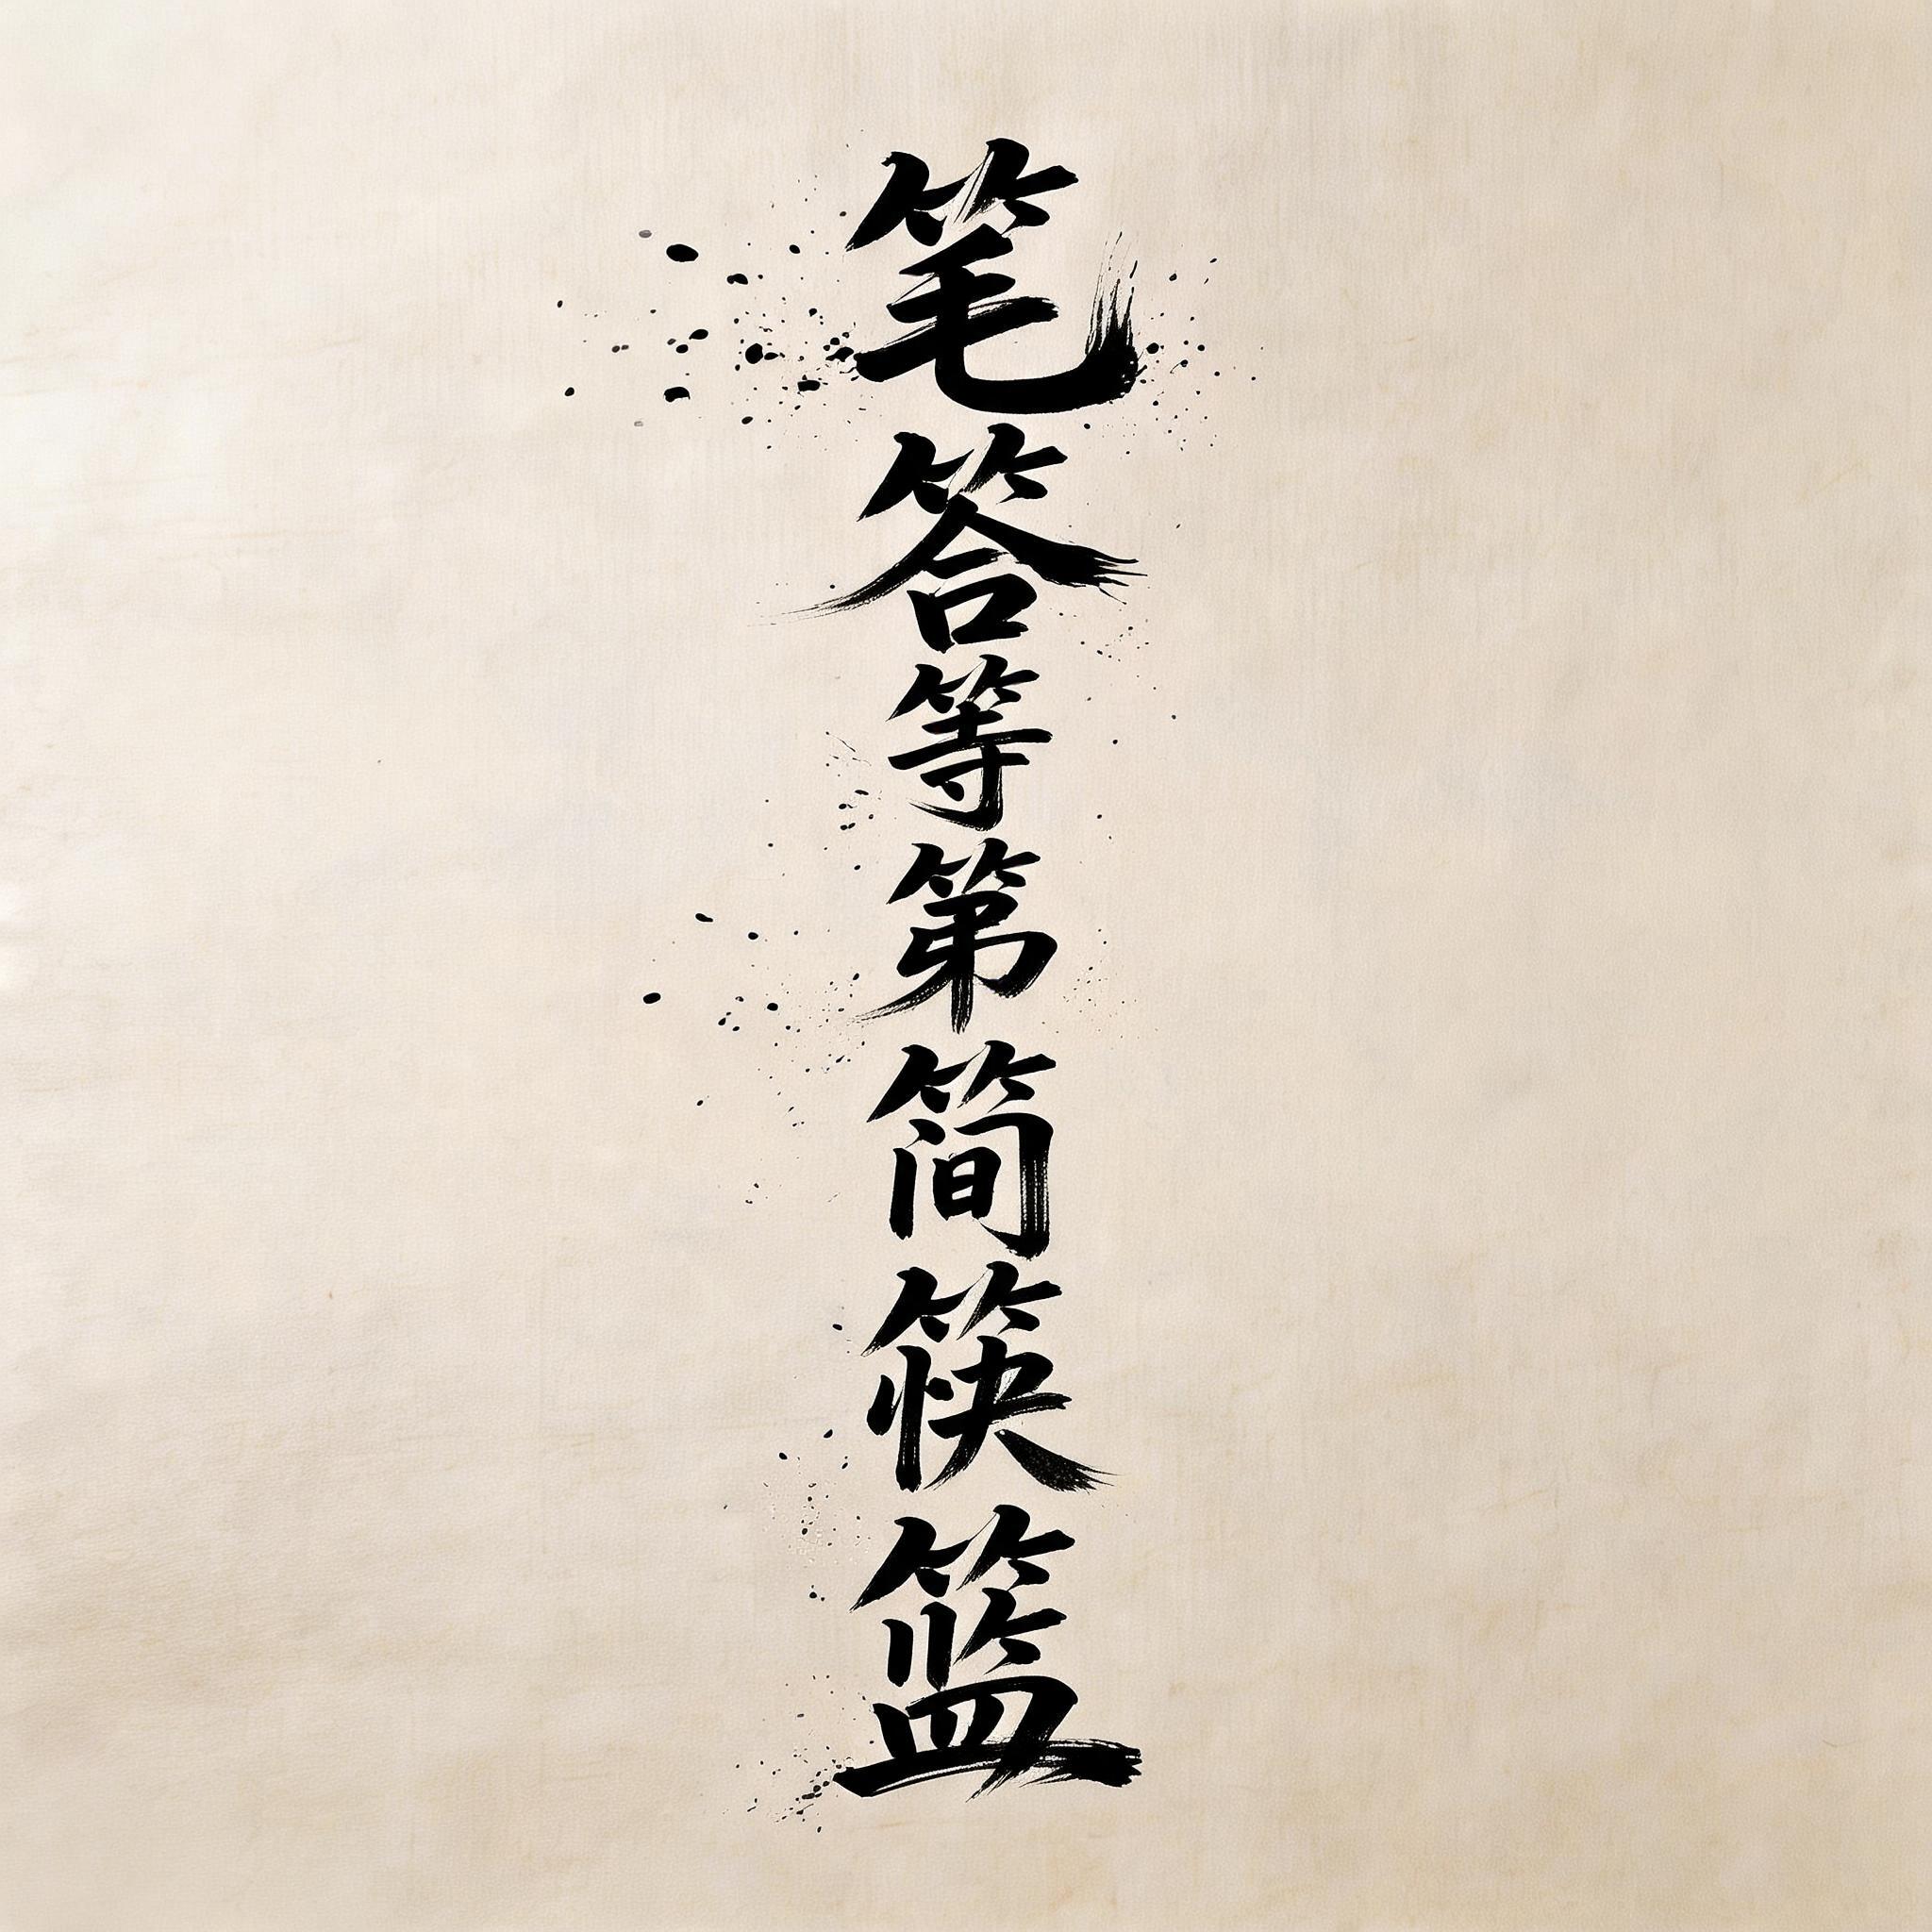 笔答等第简筷篮